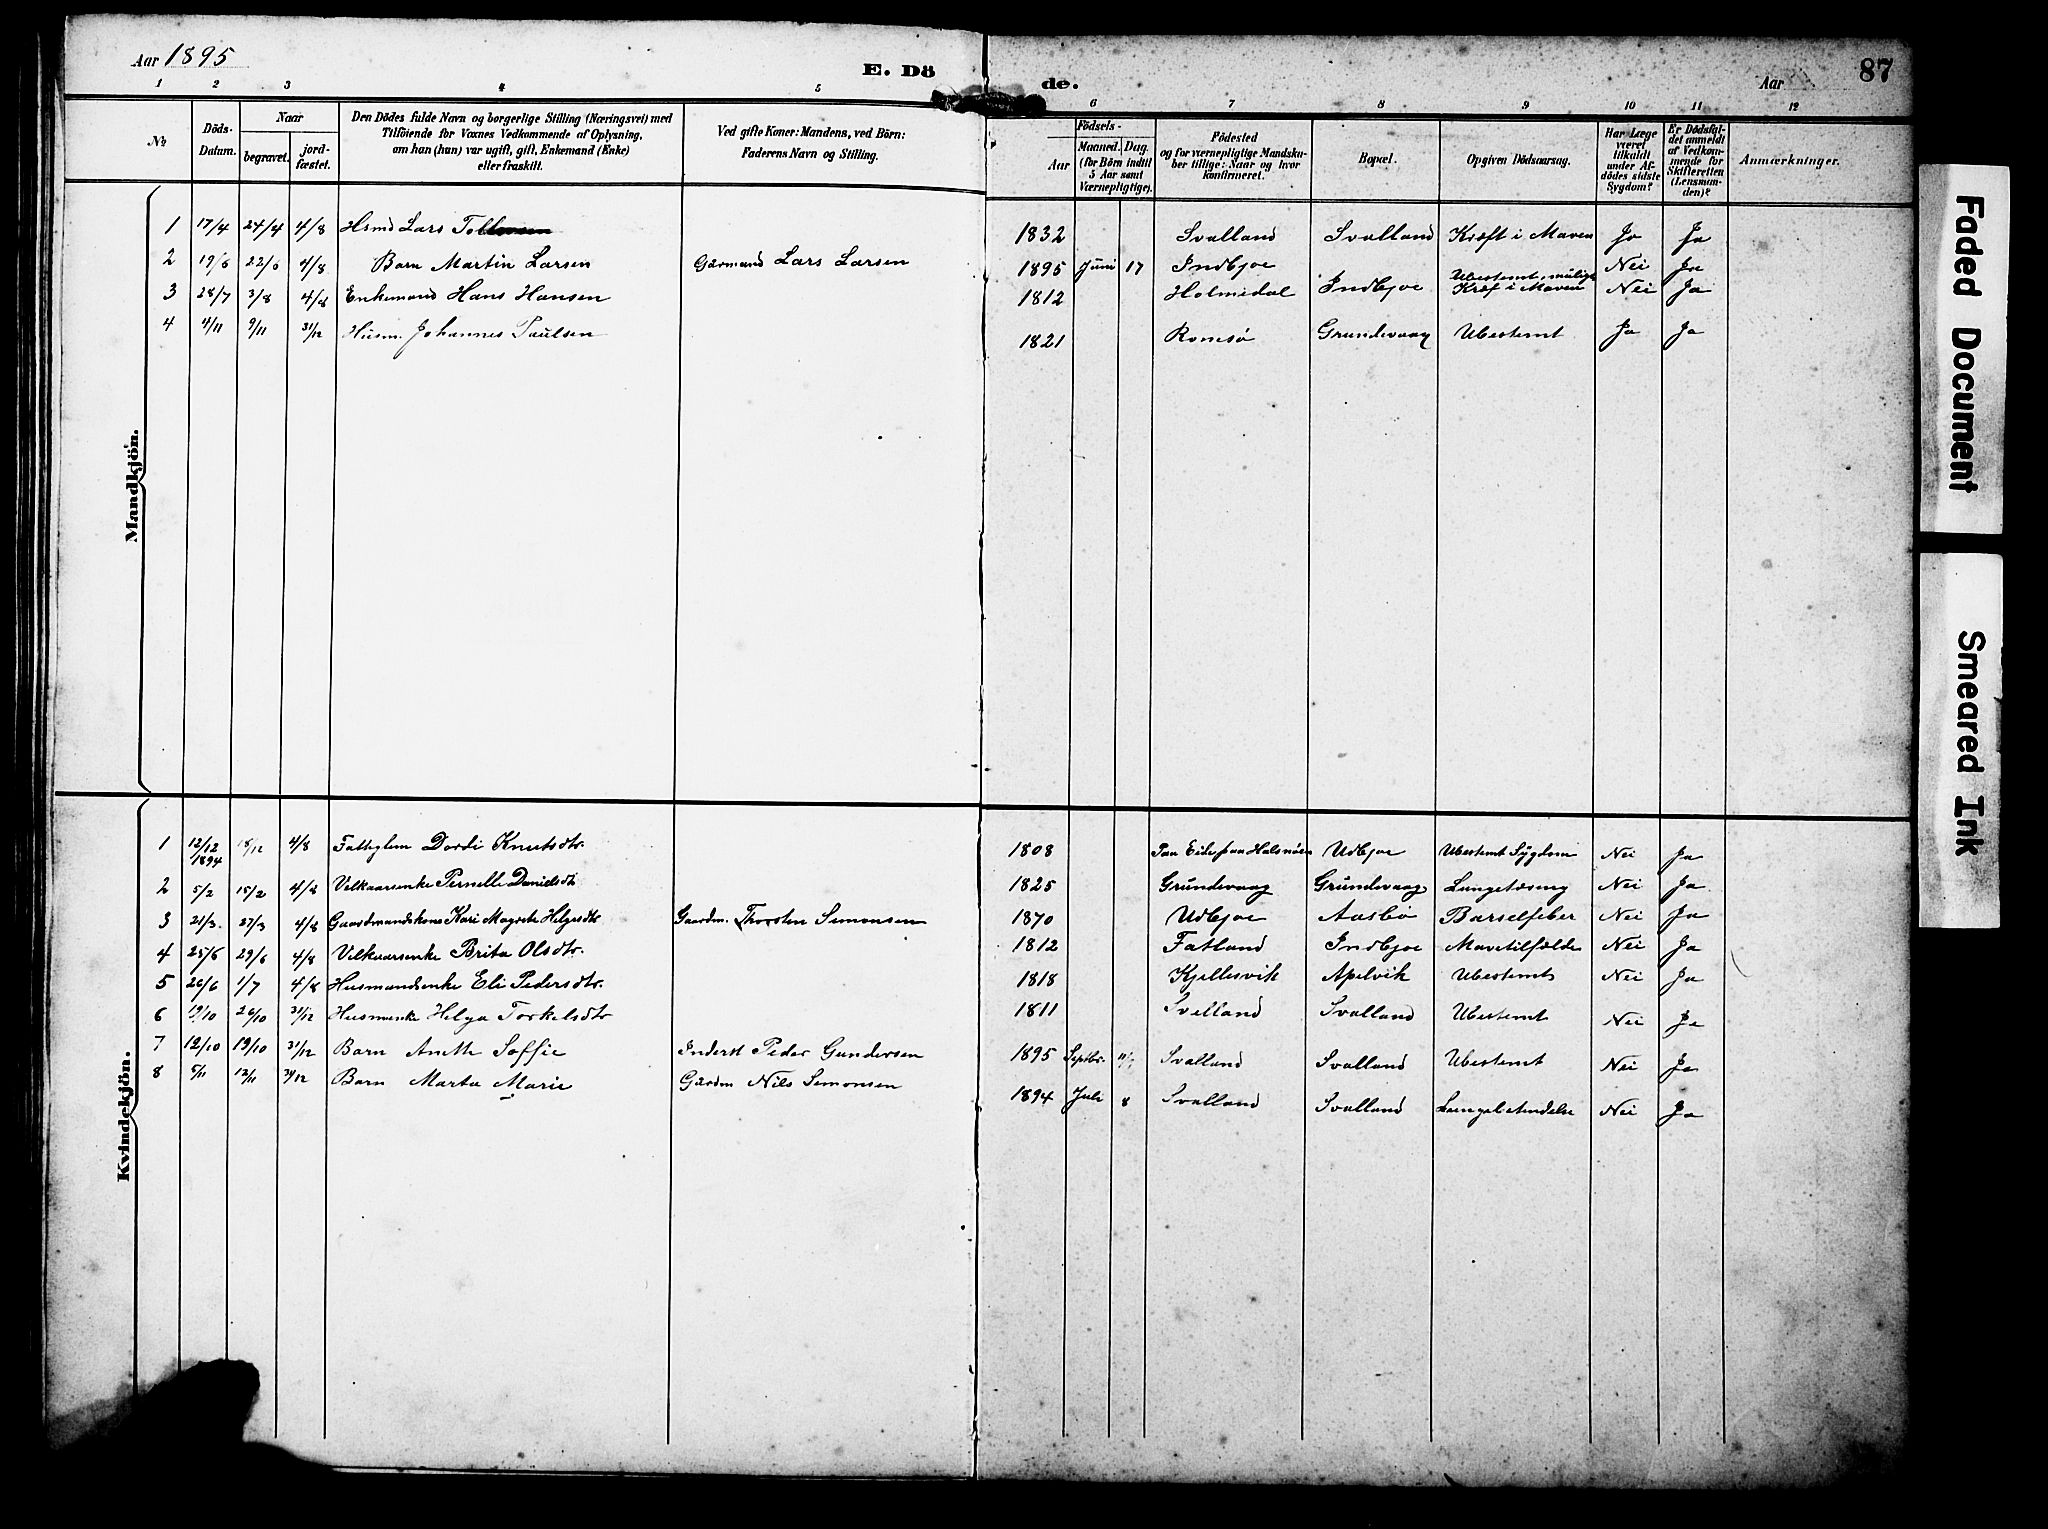 Aar 1895
E. Dö
de.
Aar
87
1 2 3 4 5 6 7 8 9 10 11 12
№
Döds-
Datum.
Naar
begravet.
jord-
fæstet.
Den Dödes fulde Navn og borgerlige Stilling (Næringsvei) med
Tilföiende for Voxnes Vedkommende af Oplysning,
om han (hun) var ugift, gift, Enkemand (Enke)
eller fraskilt.
Ved gifte Koner: Mandens, ved Börn:
Faderens Navn og Stilling.
Födsels-
Aar
Maaned. Dag.
(for Börn indtil
5 Aar samt
Værnepligtige).
Födested
og for værnepligtige Mandska-
ber tillige: Naar og hvor
konfirmeret.
Bopæl.
Opgiven Dödsaarsag.
Har Læge
været
tilkaldt
under Af-
dödes sidste
Sygdom?
Er Dödsfal-
det anmeldt
af Vedkom-
mende for
Skifteretten
(Lensman-
den)?
Anmærkninger.
Mandkjön.
1 17/4 24/4 4/8 Hsmd Lars 1832 Svalland Svalland Kræft i Maven Ja Ja
2 19/6 22/6 4/8 Barn Martin Larsen Gærmand Lars Larsen 1895 Juni 17 Indbjoe Nei Ja
3 28/7 3/8 4/8 Enkemand Hans Hansen 1812 Holmedal Indbjoe Ubestemt, muligt Kræf i Maven Nei Ja
4 4/11 9/11 31/12 Husm. Johannes Paulsen 1821 Romsö Grundevaag Ubestemt Ja Ja
Kvindekjön.
1 12/12 1894 18/12 4/8 Fattiglem Dordi Knutsdtr. 1808 Paa Eide paa Halsnöen Udbjoe Ubestemt Sygdom Nei Ja
2 5/2 15/2 4/8 Velkaarsenke Pernelle Danielsdtr 1825 Grundevaag Grundevaag Lungetæring Nei Ja
3 21/3. 27/3 4/8 Gaardmandskone Kari Magrete Helgesdtr Gaardm. Thorsten Simonsen 1870 Udbjoe Aasbö Barselfeber Nei Ja
4 25/6 29/6 4/8 Velkaarsenke Brita Olsdtr. 1812 Fatland Indbjoe Mavetilfælde Nei Ja
5 26/6 1/7 4/8 Husmandsenke Eli Pedersdtr. 1818 Kjellesvik Apelvik Ubestemt Nei Ja
6 19/10 26/10 31/12 Husmenke Helga Torkelsdtr 1811 Svalland Svalland Ubestemt Nei Ja
7 12/10 19/10 31/12 Barn Anette Soffie Inderst Peder Gundersen 1895 Septbr. Svalland Svalland Ubestemt Nei Ja
8 5/11 12/11 31/12 Barn Marta Marie Gærdm Nils Simonsen 1894 Juli 8 Svalland Svalland Lungebetændelse Nei Ja
Faded Document
Smeared Ink